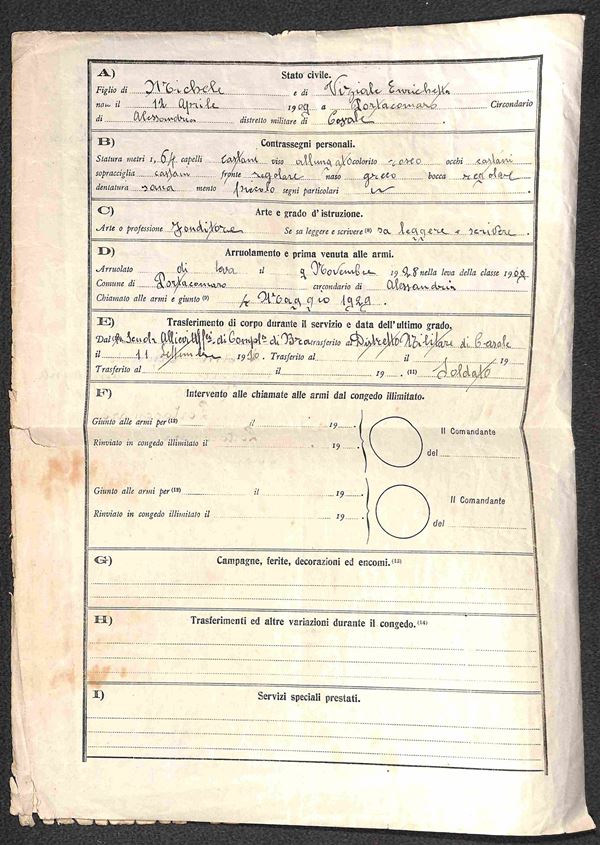 A) Stato civile.
Figlio di Michele e di Viziale Enrichetta
nato il 12 Aprile 1909 a Portacomaro Circondario
di Alessandria distretto militare di Casale.
B) Contrassegni personali.
Statura metri 1, 64 capelli castani viso allungato colorito roseo occhi castani
sopracciglia castani fronte regolare naso greco bocca regolare
dentatura sana mento piccolo segni particolari
C) Arte e grado d'istruzione.
Arte o professione Se sa leggere e scrivere (8) sa leggere e scrivere.
D) Arruolamento e prima venuta alle armi.
Arruolato di leva il 9 Novembre 1928 nella leva della classe 1909.
Comune di Portacomaro circondario di Alessandria
Chiamato alle armi e giunto (9) 4 Maggio 1929.
E) Trasferimento di corpo durante il servizio e data dell'ultimo grado.
Dal Scuola Allievi Uff.li di Compl.to di Bra trasferito al Distretto Militare di Casale
il 11 Settembre 1930. Trasferito al il 19
Trasferito al il 19 . (11) Soldato
F) Intervento alle chiamate alle armi dal congedo illimitato.
Giunto alle armi per (12) il 19
Il Comandante
Rinviato in congedo illimitato il 19
del
Giunto alle armi per (12) il 19
Il Comandante
Rinviato in congedo illimitato il 19
del
G) Campagne, ferite, decorazioni ed encomi. (13)
H) Trasferimenti ed altre variazioni durante il congedo. (14)
I) Servizi speciali prestati.